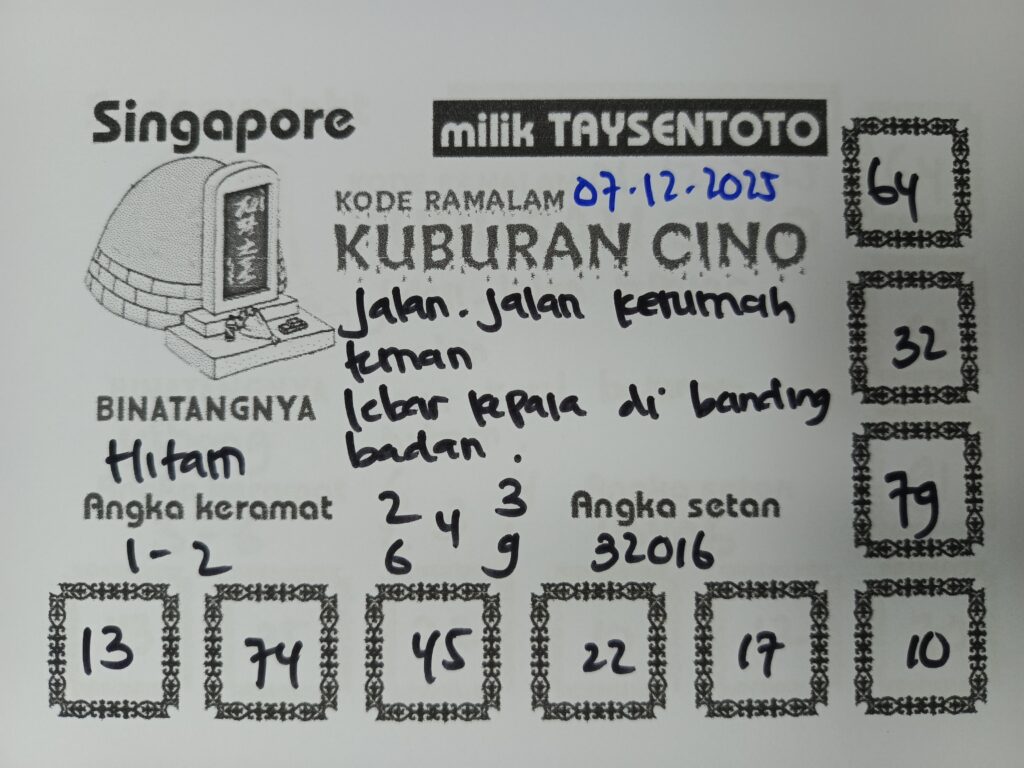 Singapore
milik TAYSENTOTO
KODE RAMALAM 07.12.2025
KUBURAN CINO
Jalan. Jalan kerumah
teman
lebar kepala di banding
badan.
BINATANGNYA
Hitam
Angka keramat
1-2
2 3
4
6 9
Angka setan
32016
64
32
79
13 74 45 22 17 10